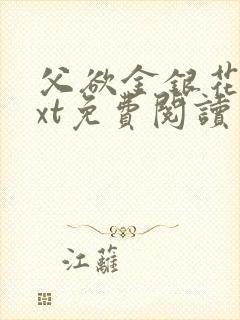 父欲金銀花
xt免費閱讀
江蘺